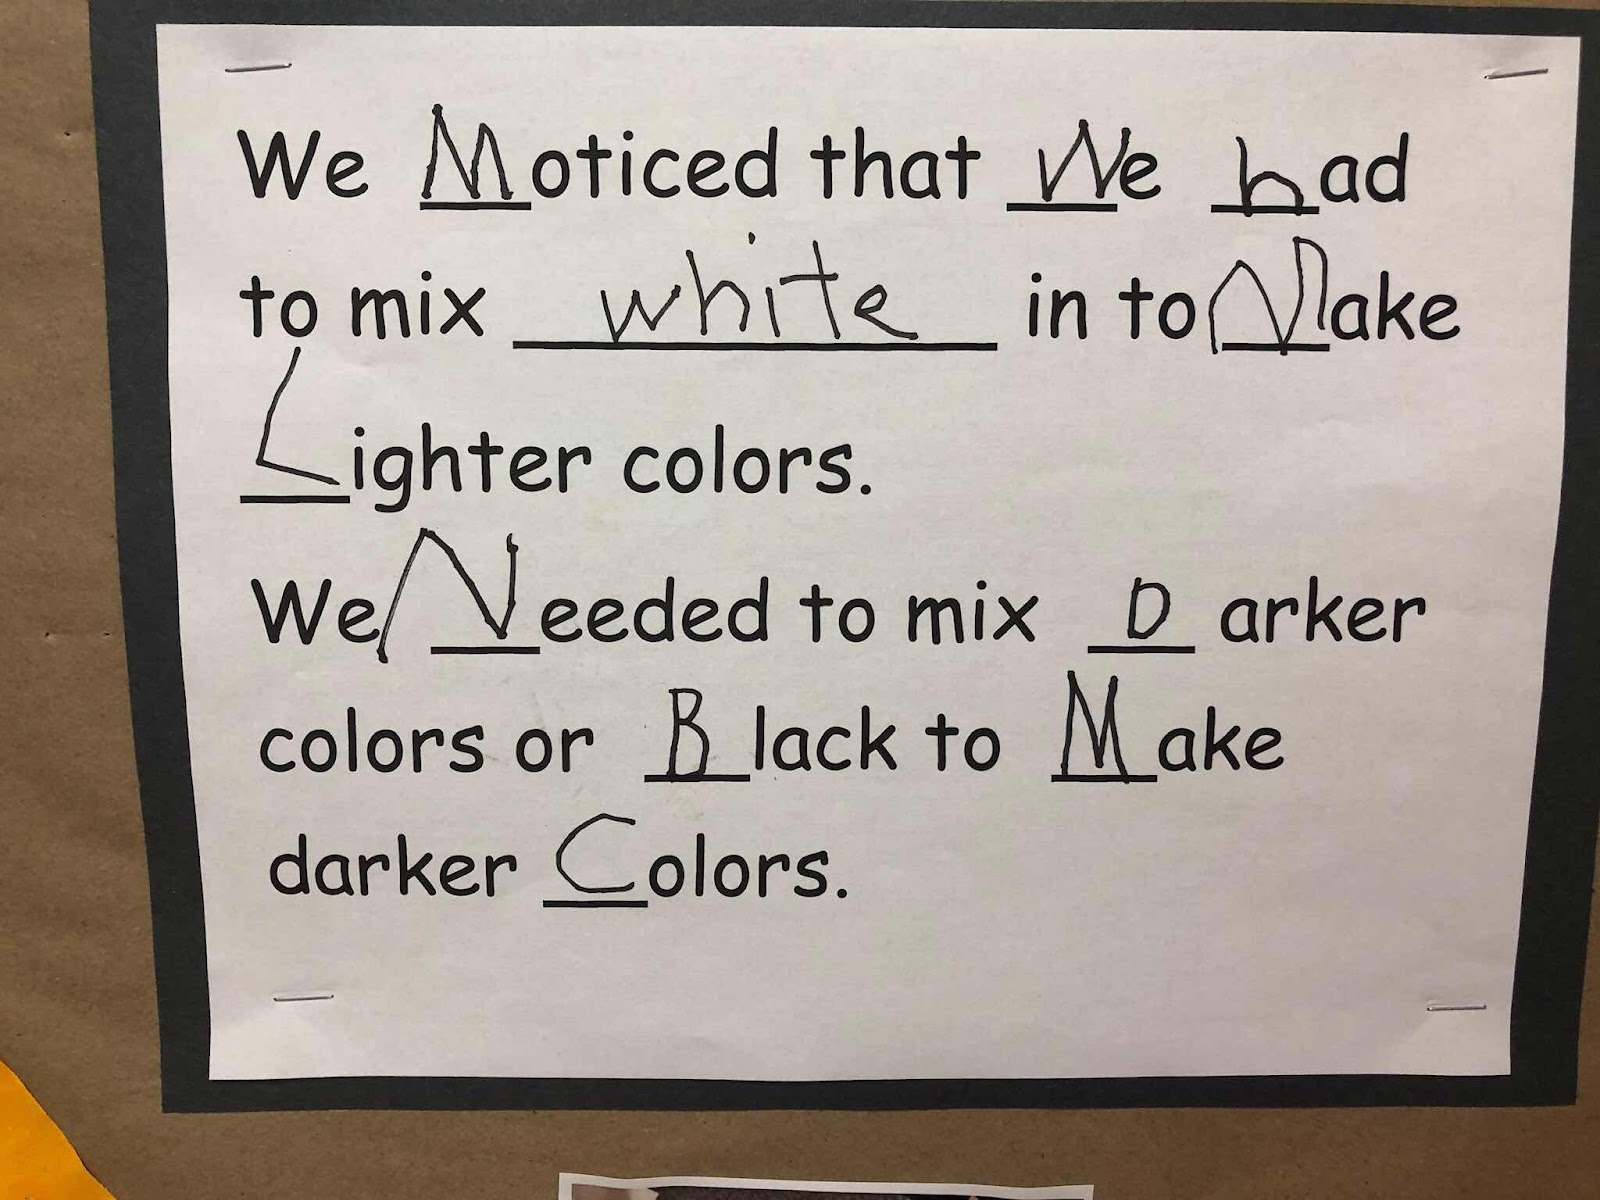 We Moticed that We had
to mix white in to Make
Lighter colors.
We Needed to mix D arker
colors or Black to Make
darker Colors.